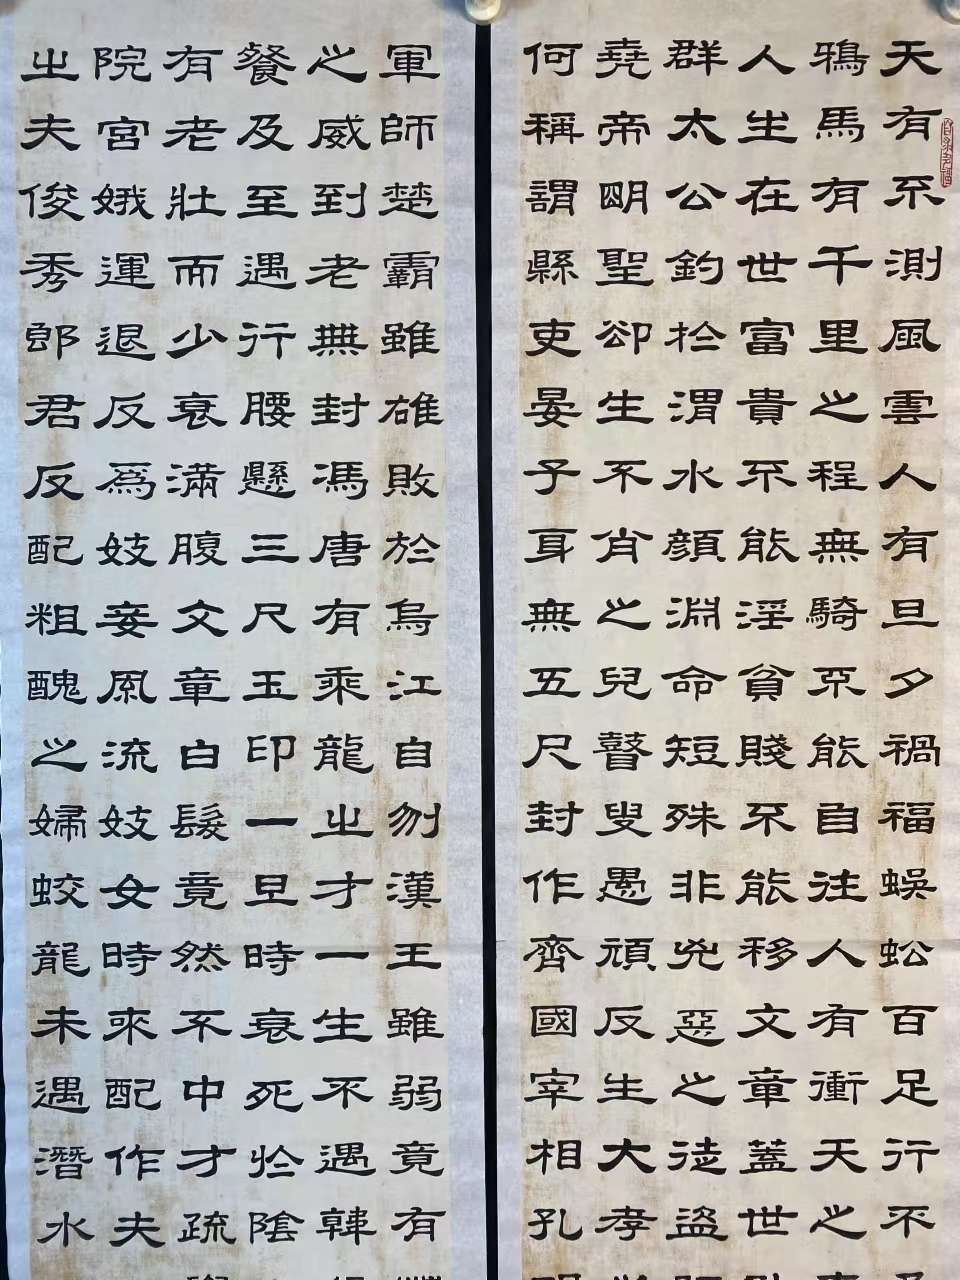 天有不測風雲人有旦夕禍福蜈蚣百足行不
鴉馬有千里之程無騎不能自往人有衝天之
人生在世富貴不能淫貧賤不能移文章蓋世
群太公釣於渭水顏淵命短殊非兇惡之徒盜
堯帝明聖卻生不肖之兒瞽叟愚頑反生大孝
何稱謂縣吏晏子身無五尺封作齊國宰相孔
軍師楚霸雖雄敗於烏江自刎漢王雖弱竟有
之威到老無封馮唐有乘龍之才一生不遇韓
餐及至遇行腰懸三尺玉印一旦時衰死於陰
有老壯而少衰滿腹文章白髮竟然不中才疏
院宮娥運退反為妓妾風流妓女時來配作夫
之夫俊秀郎君反配粗醜之婦蛟龍未遇潛水